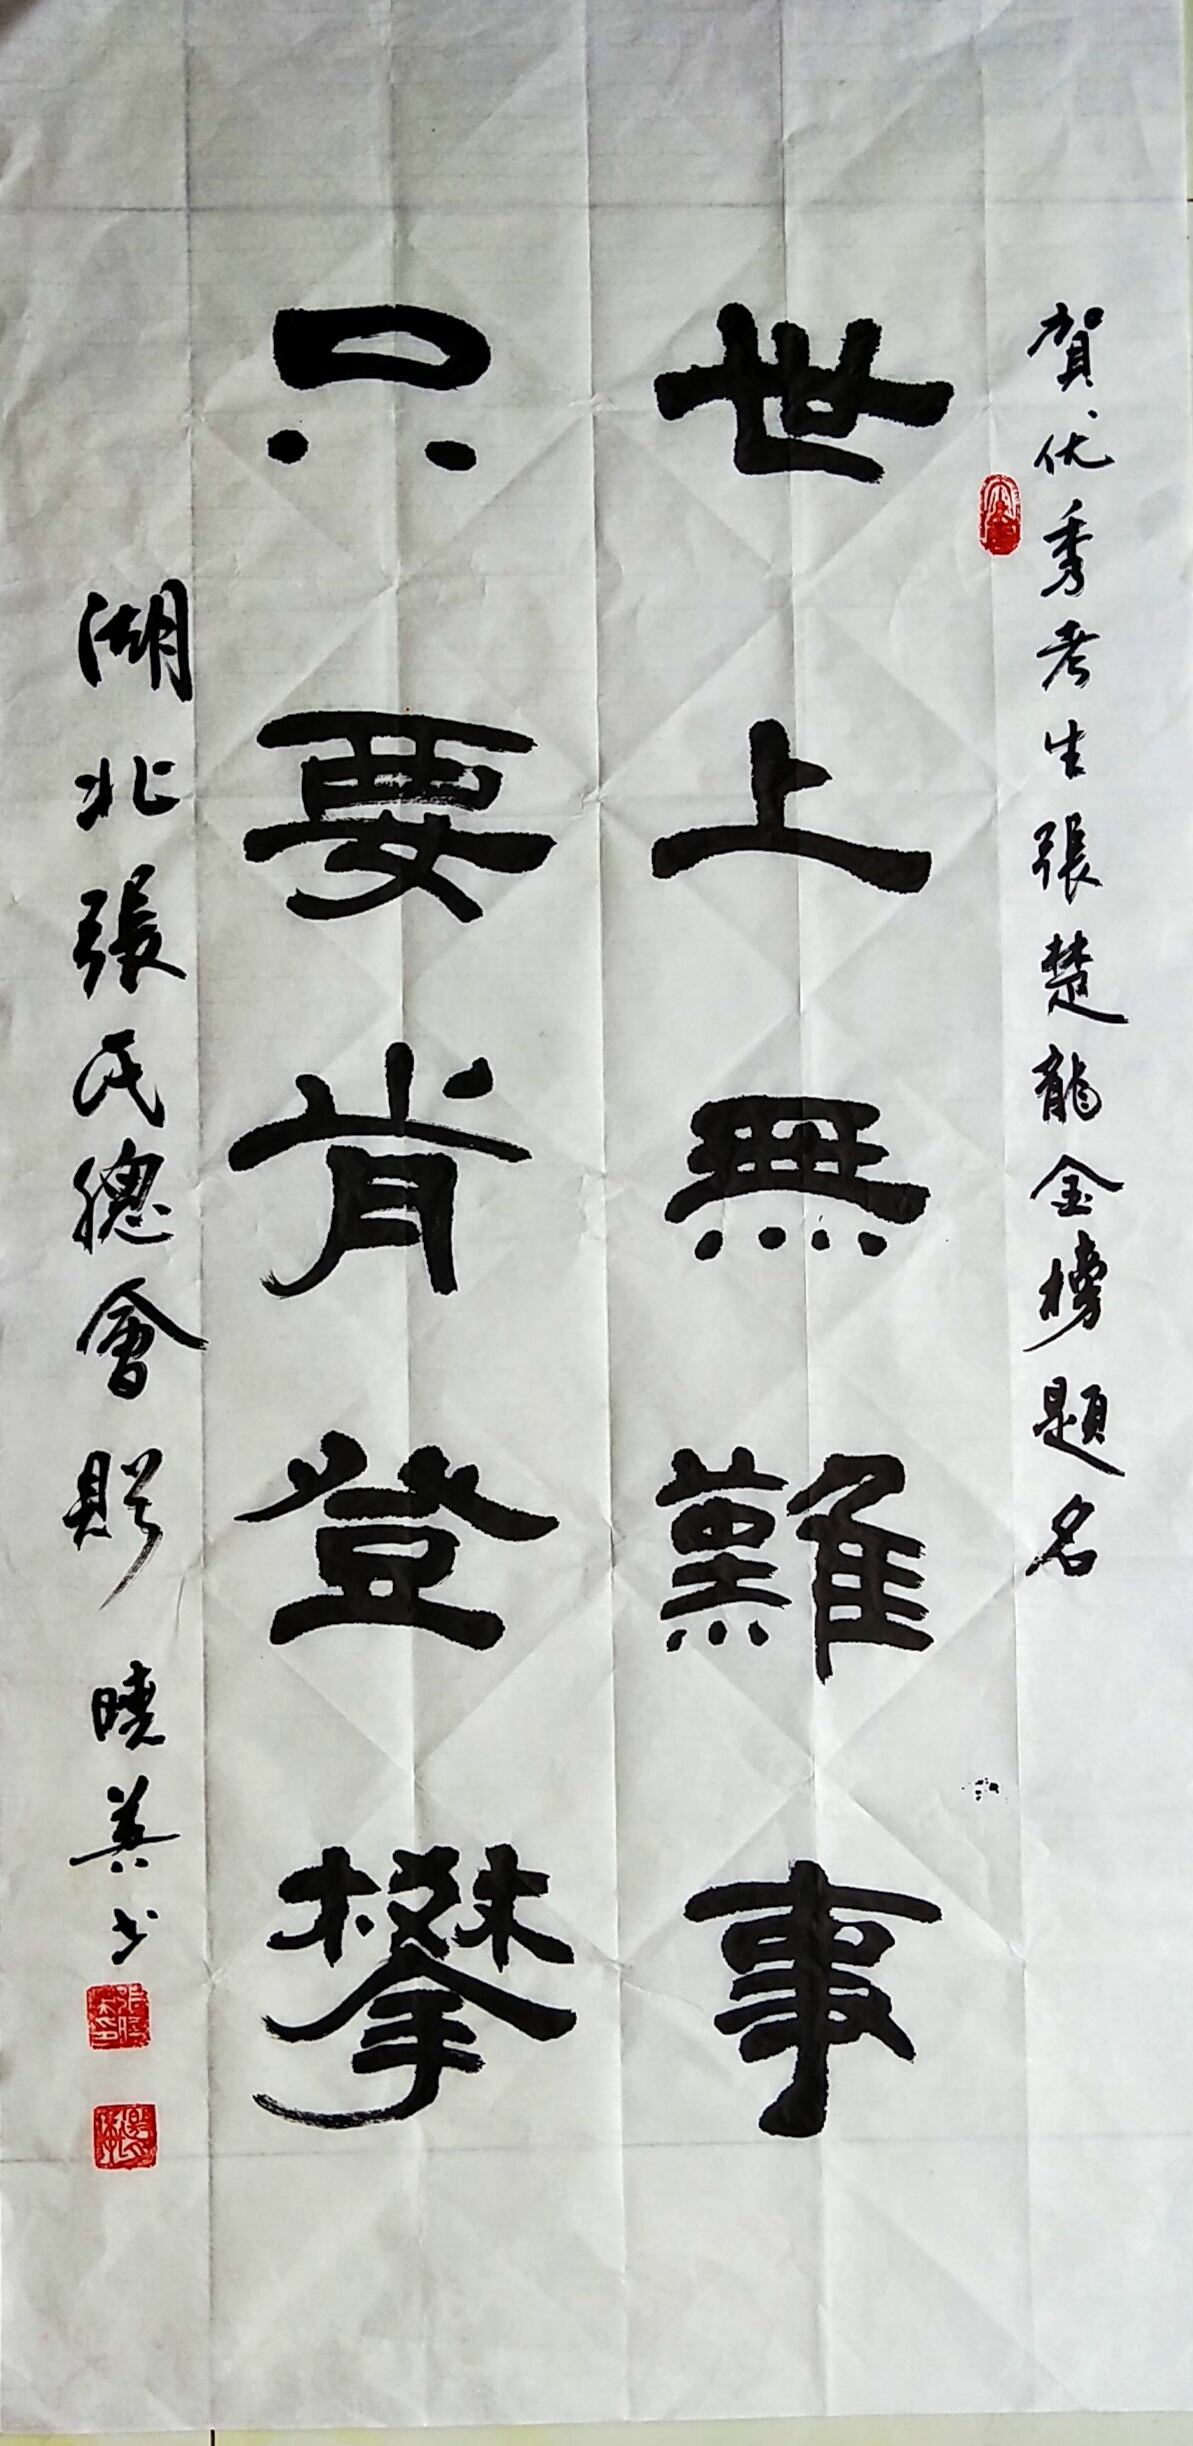 賀、优秀考生張楚龍金榜題名
世上無難事
只要肯登攀
湖北張氏總會贈
曉義书